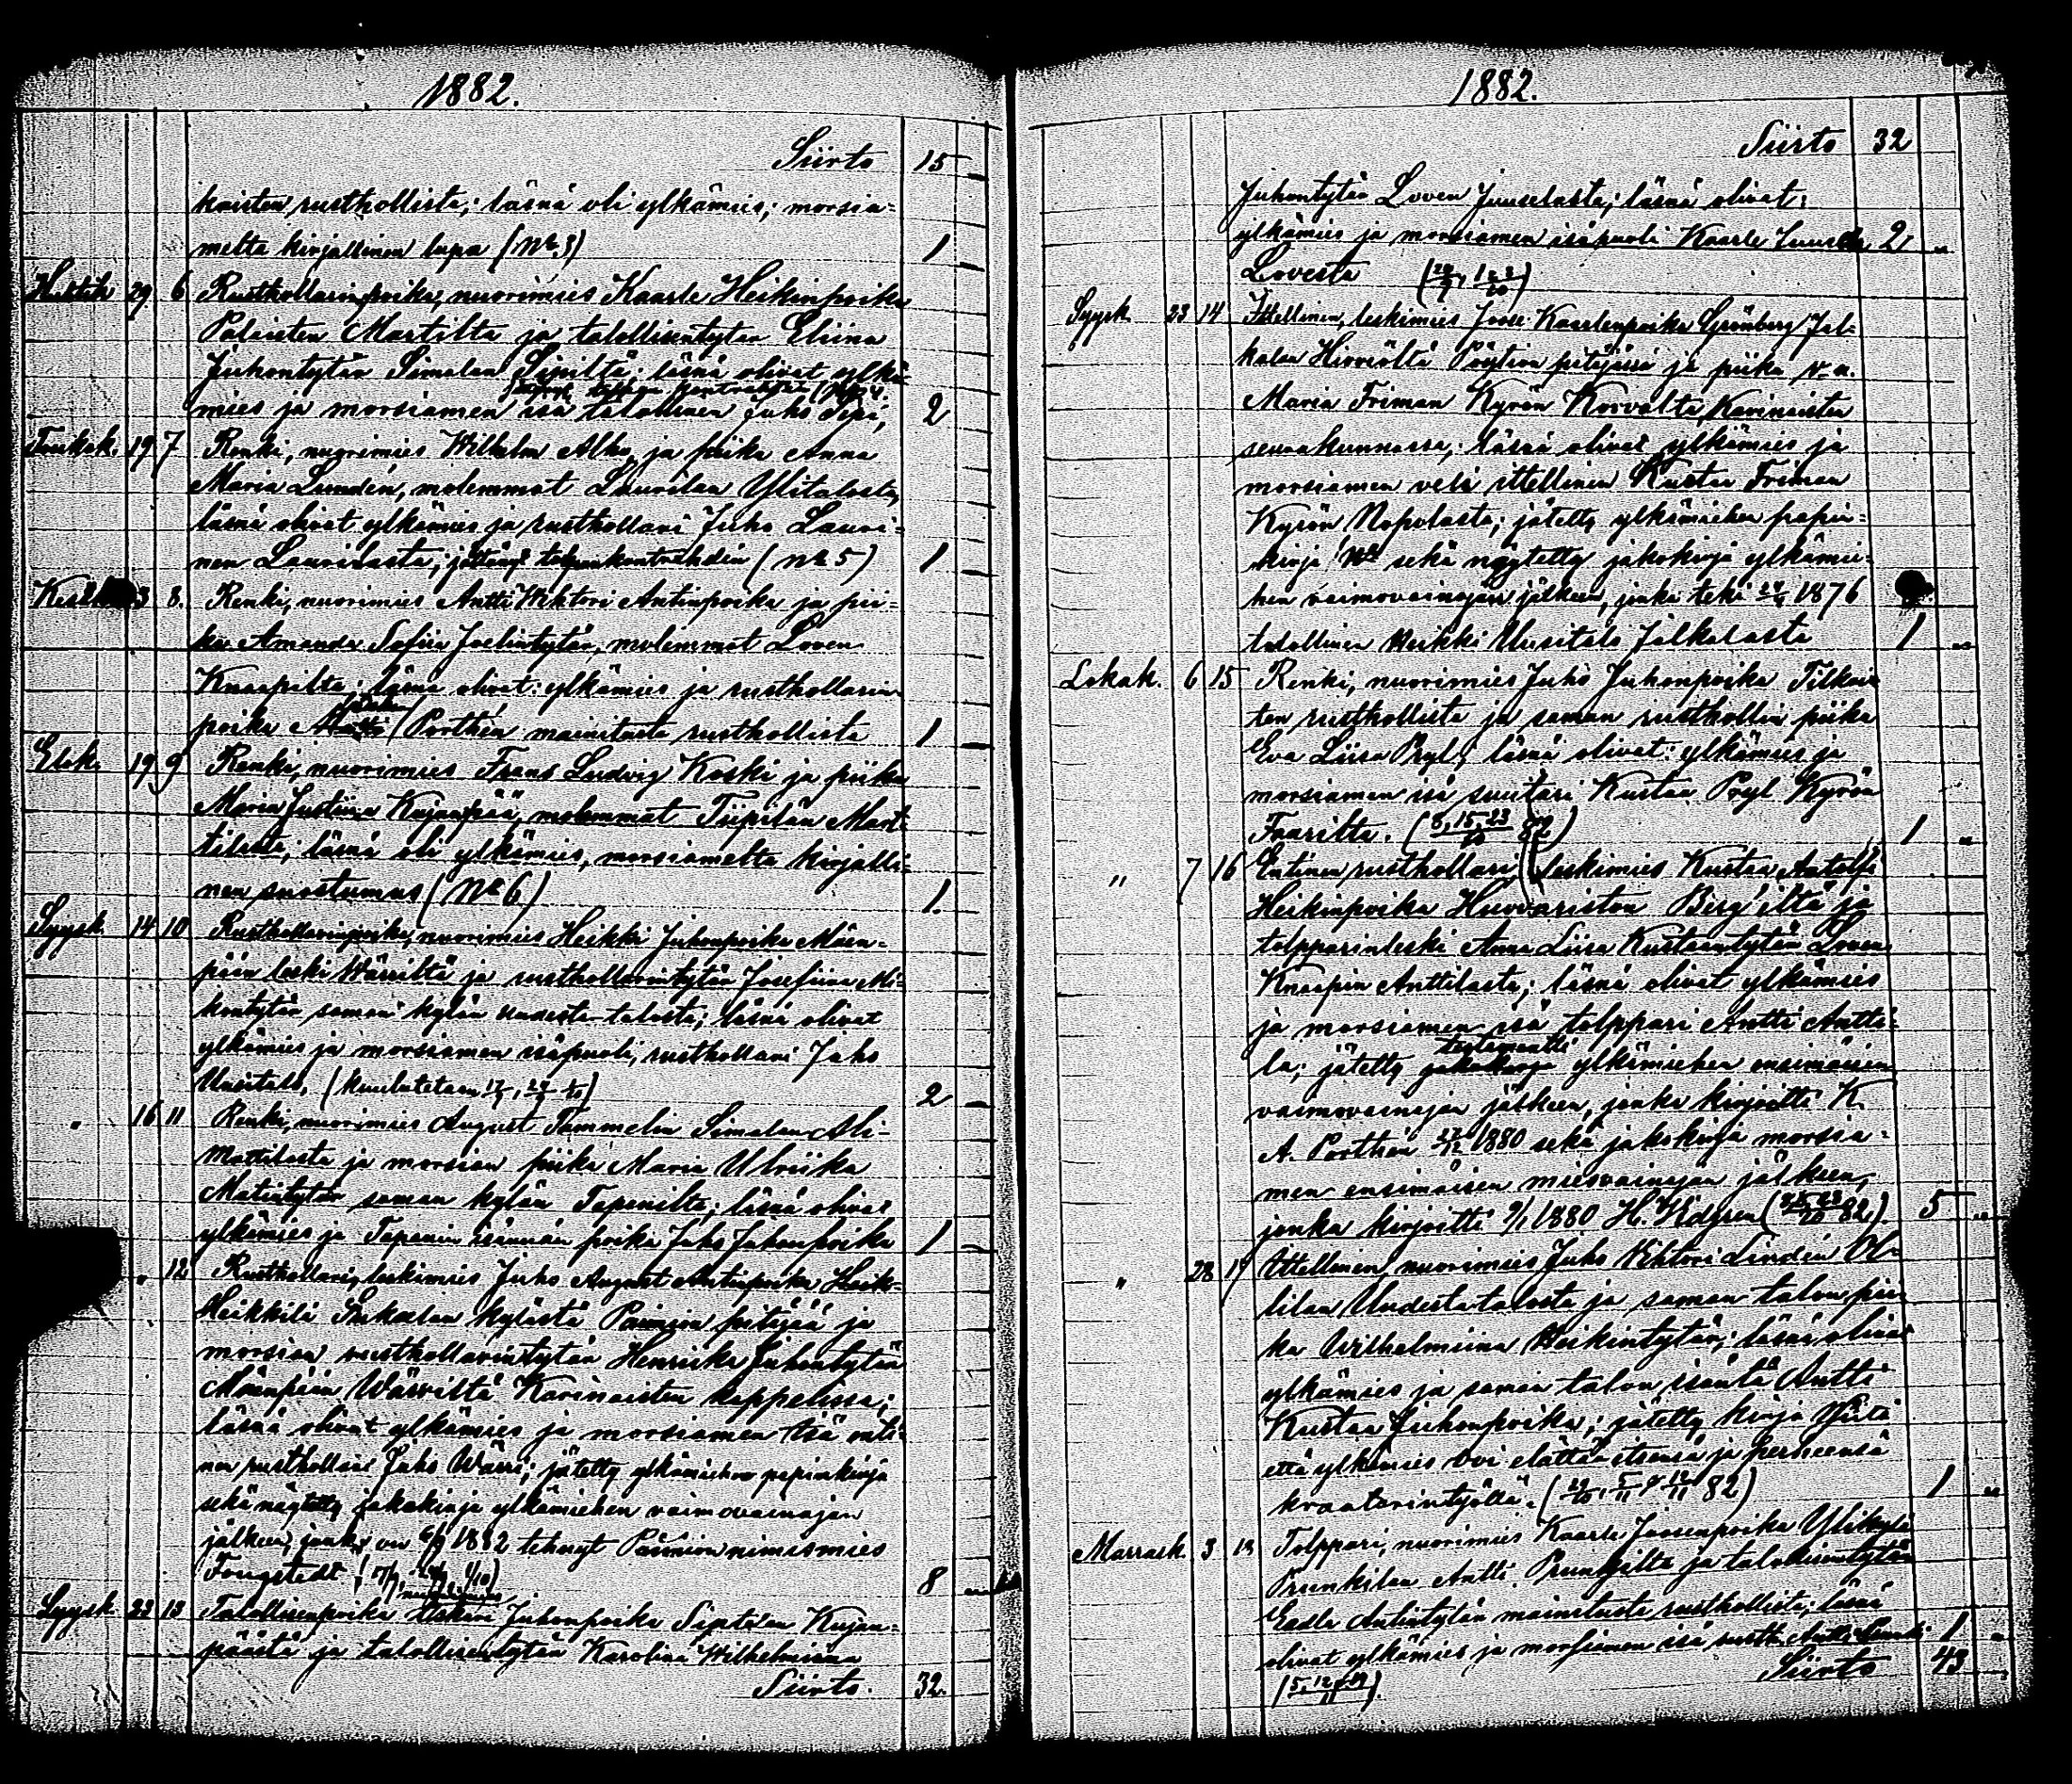 1882.
Siirto 15 —
kaisten rusthollista; läsnä oli ylkämies; morsia-
melta kirjallinen lupa (No 3) 1 —
Huhtik 29 6 Rusthollarinpoika, nuorimies Kaarle Heikinpoika
Palaisten Marttilta ja talollisentytär Eliina
Juhontytär Simalan Sipiltä; läsnä olivat ylkä-
mies ja morsiamen isä talollinen Juho Sipi; 2
Toukok. 19 7 Renki, nuorimies Wilhelm Alho, ja piika Anna
Maria Lundén, molemmat Laurilan Ylitalosta,
läsnä olivat ylkämies ja rusthollari Juho Lauri-
nen Laurilasta; jättänyt torpankontrahdin (No 5) 1 —
Kesäk 3 8. Renki, nuorimies Antti Wiktori Antinpoika ja pii-
ka Amanda Sofiia Joelintytär, molemmat Loven
Knaapilta; läsnä olivat: ylkämies ja rusthollarin-
poika Porthén mainitusta rusthollista 1 —
Elok. 19 9 Renki, nuorimies Frans Ludvig Koski ja piika
Maria Justiina Kujanpää, molemmat Tiipilän Mart-
tilasta; läsnä oli ylkämies, morsiamelta kirjalli-
nen suostumus (No 6) 1.
Syysk. 14 10 Rusthollarinpoika, nuorimies Heikki Juhonpoika Mäen-
pään Wärriltä ja rusthollarintytär Josefiina Mi-
kontytär saman kylän uudesta-talosta; läsnä olivat
ylkämies ja morsiamen isäpuoli, rusthollari Juho
Uusitalo. (kuulutetaan 17/9, 24/9 1/10) 2 —
" 16 11 Renki, nuorimies August Tammelin Simalan Ali-
Mattilasta ja morsian piika Maria Ulriika
Matintytär saman kylän Tapanilta; läsnä olivat
ylkämies ja Tapanin isännän poika Juho Juhonpoika 1 —
" 12 Rusthollari, leskimies Juho August Antinpoika Heik-
Heikkilä kylästä Paimion pitäjää ja
morsian rusthollarintytär Henriika Juhontytär
Mäenpään Wärriltä Karinaisten kappelissa;
läsnä olivat ylkämies ja morsiamen isä enti-
nen rusthollari Juho Wärri; jätetty ylkämiehen papinkirja
sekä näytetty jakokirja ylkämiehen vaimovainajan
jälkeen, jonka on 6/9 1882 tehnyt Paimion nimismies
Forgstedt. (17/9, 24/9, 1/10) 8 —
Syysk. 23 13 Talollisenpoika Oskari Juhonpoika Siptilän Kujan-
päästä ja talollisentytär Karoliina Wilhelmiina
Siirto. 32.
1882.
Siirto 32
Juhontytär Loven Juuselasta; läsnä olivat:
ylkämies ja morsiamen isäpuoli Kaarle Juusela 2 "
Lovesta
Syysk. 23 14 Itsellinen, leskimies Joose Kaarlenpoika Grönberg Jal-
kalan Hirviöltä Pöytiän pitäjässä ja piika N. n.
Maria Friman Kyrön Korvalta Karinaisten
seurakunnassa; läsnä olivat ylkämies ja
morsiamen veli ittellinen Kustaa Friman
Kyrön Nopolasta; jätetty ylkämiehen papin-
kirja No sekä näytetty jakokirja ylkämie-
hen vaimovainajan jälkeen, jonka teki 1876
talollinen Heikki Uusitalo Jalkalasta 1 "
Lokak. 6 15 Renki, nuorimies Juho Juhonpoika Tilkais-
ten rusthollista ja saman rusthollin piika
Eva Liisa Pryl; läsnä olivat: ylkämies ja
morsiamen isä suutari Kustaa Pryl Kyrön
Faarilta. (8, 15, 23/10 82) 1 "
" 7 16 Entinen rusthollari, leskimies Kustaa Antolfi
Heikinpoika Huovariston Berg'iltä ja
tolpparinleski Anna Liisa Kustaantytär Loven
Knaapin Anttilasta; läsnä olivat ylkämies
ja morsiamen isä tolppari Antti Antti-
la; jätetty testamentti ylkämiehen ensimäisen
vaimovainajan jälkeen, jonka kirjoitti K.
A. Porthén 1880 sekä jakokirja morsia-
men ensimäisen miesvainajan jälkeen,
jonka kirjoitti 9/1 1880 H. Widgren (8, 15, 23/10 82). 5 "
" 28 17 Ittellinen, nuorimies Juho Wihtori Lindén Ol-
lilan Uudestatalosta ja saman talon pii-
ka Wilhelmiina Heikintytär; läsnä olivat
ylkämies ja saman talon isäntä Antti
Kustaa Juhonpoika; jätetty kirja siitä
että ylkämies voi elättää itsensä ja perheensä
kraatarintyöllä. (29/10, 5/11 & 12/11 82) 1 "
Marrask. 3 18 Tolppari, nuorimies Kaarle Joosenpoika Ylikylä
Prunkilan Antti Prunkilta ja talollisentytär
Eedla Antintytär mainitusta rusthollista; läsnä
olivat ylkämies ja morsiamen isä rusth. Antti Prunki 1 "
(5, 12 & 19/11). Siirto 43